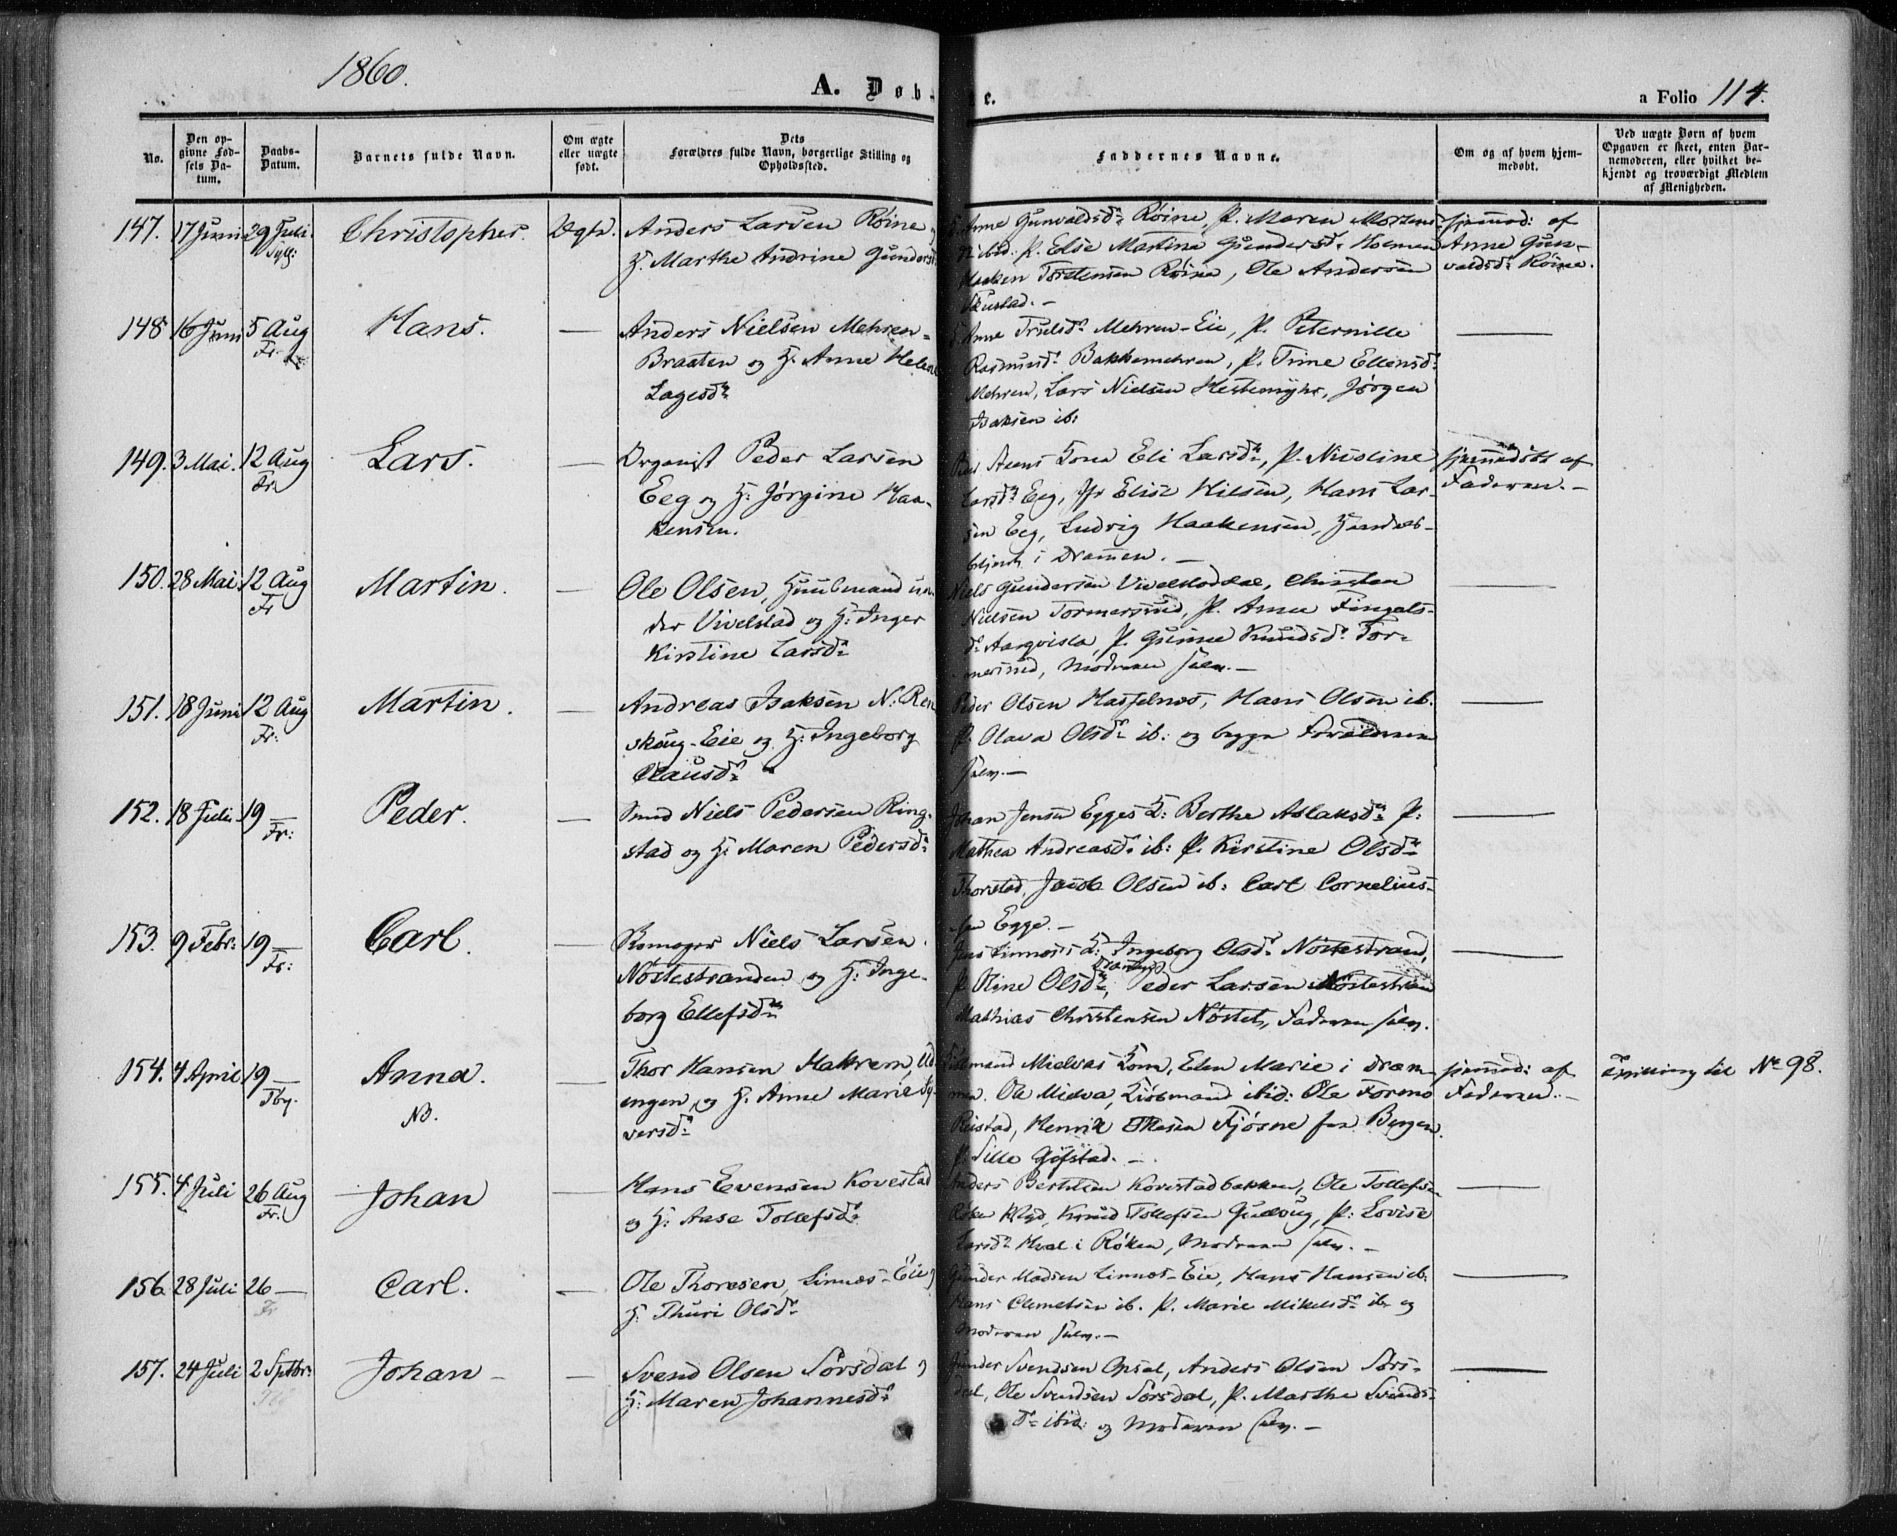 1860.
A. Døb-
te.
a Folio 114.
No.
Den op-
givne Fød-
sels Da-
tum.
Daabs-
Datum.
Barnets fulde Navn.
Om ægte
eller uægte
født.
Dets
Forældres fulde Navn, borgerlige Stilling og
Opholdssted.
Faddernes Navne.
Om og af hvem hjem-
medøbt.
Ved uægte Børn af hvem
Opgaven er skeet, enten Bar-
nemoderen, eller hvilket be-
kjendt og troværdigt Medlem
af Menigheden.
147. 17 Juni 29 Juli Christopher. Ægte.
Anders Larsen Røine
H. Marthe Andrine Gunders
Anne Gunvaldsd. Røine, P. Maren Mortens
ibid. P. Else Martine Gundersd. Hoemen
Haaken Torstensen Røine, Ole Andersen
hjemmed: af
Anne Gun-
valdsd. Røine.
148 16 Juni 5 Aug Hans. —
Fr.
Anders Nielsen Mehren-
Braaten og H. Anne Helene
Lagesd.
Anne Trulsd. Mehren-Eie, P. Peternille
Rasmusd. Bakkemehren, P. Trine Ellensd.
Mehren, Lars Nielsen Hestemyhr, Jørgen
Isaksen ib: —
149. 3 Mai. 12 Aug Lars. —
Fr.
Organist Peder Larsen
Eeg og H. Jørgine Haa-
kensen.
Steens Kone Eli Larsd., P. Nicoline
Larsd. Eeg, Jfr Elise Nilsen, Hans Lar-
sen Eeg, Ludvig Haakensen, Handels-
betjent i Drammen. —
hjemmedøbt af
Faderen. —
150. 28 Mai. 12 Aug Martin. —
Fr
Ole Olsen, Huusmand un-
der Vivelstad og H. Inger
Kirstine Larsd.
Niels Gundersen Vivelstaddal, Christen
Nielsen Tormersrud, P. Anne Fingals-
d. Aaqvisla, P. Gunne Knudsd. Tor-
mersrud, Moderen selv. —
151. 18 Juni 12 Aug Martin. —
Fr:
Andreas Isaksen N: Ren
skoug-Eie og H. Ingeborg
Clausd.
Peder Olsen Hasselnes, Hans Olsen ib.
P. Olava Olsd. ib: og begge Forældrene
selv. —
152. 18 Juli 19 — Peder. —
Fr:
Smed Niels Pedersen Ring-
stad og H. Maren Pedersd.
Johan Jensen Egges K: Berthe Aslaksd. P:
Mathea Andreasd. ib: P. Kirstine Olsd.
Thorstad, Jacob Olsen ib: Carl Cornelius-
sen Egge. —
153. 9 Febr: 19 — Carl. —
Fr:
Skomager Niels Larsen
Nøstestranden og H: Inge-
borg Ellefsd.
Jens Linnes's K: Ingeborg Olsd. Nøstestrand,
P. Oline Olsd., Peder Larsen Nøstestrand
Mathias Christensen Nøstet, Faderen selv.
154. 4 April 19 — Anna. —
NB.
Thor Hansen
engen, og H. Anne Marie Sy-
versd.
Kone, Elen Marie i Dram-
men. Ole Midva, Kiøbmand ibid: Ole Formo
Reistad, Henrik Fjøsne fra Bergen.
P. Sille Gjefstad. —
hjemmed: af
Faderen. —
til No 98.
155. 4 Juli 26 Aug Johan —
Fr.
Hans Evensen Kovestad
og H: Aase Tollefsd.
Anders Bertelsen Kovestadbakken, Ole Tollefsen
Knud Tollefsen Gudvug, P: Lovise
Larsd. Hval i Røken, Moderen selv. —
156. 28 Juli 26 — Carl. —
Fr
Ole Thoresen, Linnes-Eie og
H: Thuri Olsd.
Gunder Madsen Linnes-Eie, Hans Hansen ib.
Hans Clemetsen ib. P. Marie Mikelsd. ib og
Moderen selv. —
157. 24 Juli 2 Septbr: Johan — —
Svend Olsen Sørsdal og
H: Maren Johannesd.
Gunder Svendsen Opsal, Anders Olsen Sørs-
dal, Ole Svendsen Sørsdal, P. Marthe Svends-
d. ibid: og Moderen selv. —